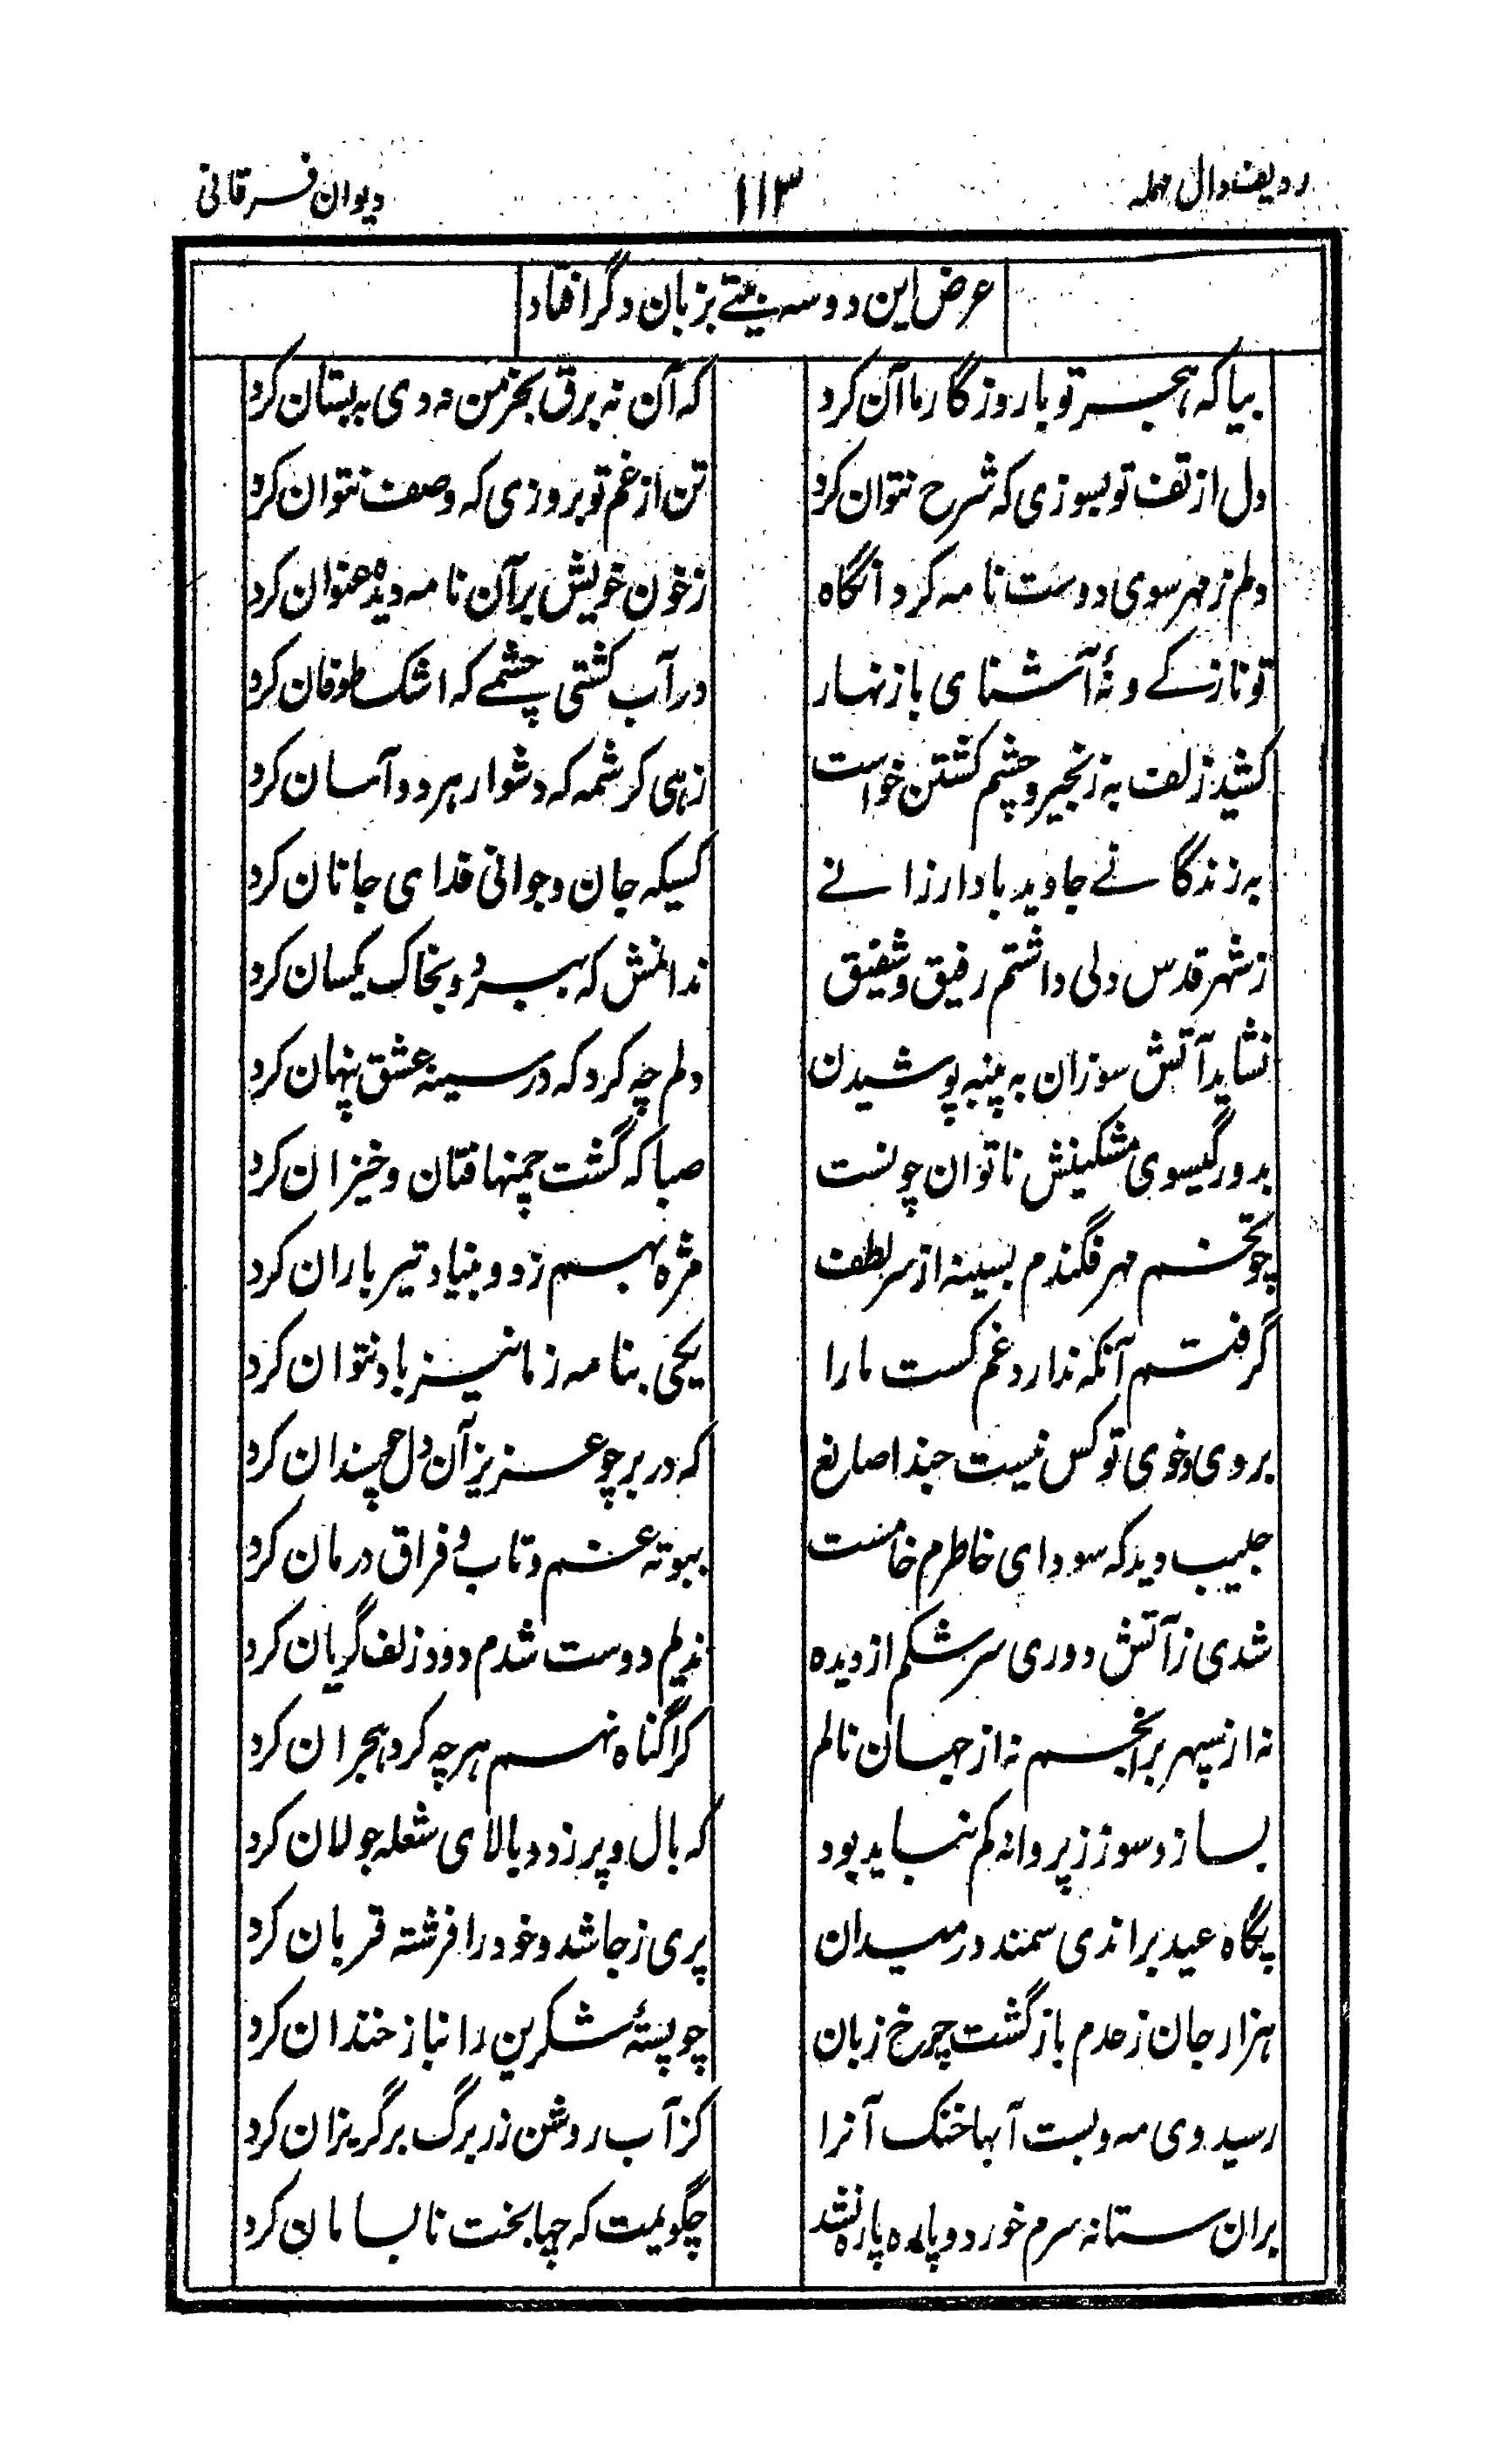 ردیف دال مهمله ۱۱۳ دیوان فرقانی
عرض این دو سه بیتے بزبان دگر افتاد
بیا که هجر تو با روزگار ما آن کرد که آن نه برق بخرمن نه دی به بستان کرد
دل از تف تو بسوزی که شرح نتوان کرد تن از غم تو بروزی که وصف نتوان کرد
دلم ز مهر سوی دوست نامه کرد انگاه ز خون خویش بر آن نامه دیده عنوان کرد
تو نازکے و نۀ آشنای بازنهار در آب کشتی چشمے که اشک طوفان کرد
کشید زلف به زنجیر و چشم کشتن خواست زهی کرشمه که دشوار هر دو آسان کرد
به زندگانے جاوید باد ارزانے کسیکه جان و جوانی فدای جانان کرد
ز شهر قدس دلی داشتم رفیق و شفیق ندانمش که ببرد و بخاک یکسان کرد
نشاید آتش سوزان به پنبه پوشیدن دلم چه کرد که در سینه عشق پنهان کرد
بدور گیسوی مشکینش ناتوان چونست صبا که گشت چمنها فتان و خیزان کرد
چو تخم مهر فگندم بسینه از سر لطف مژه بهم زد و بنیاد تیر باران کرد
گرفتم آنکه ندارد غم کست ما را یکی بنامه ز ما نیز یاد نتوان کرد
بروی و خوی تو کس نیست حبذا صانع که در بر چو عزیز آن دل چو سندان کرد
طبیب دید که سودای خاطرم خامست ببوته غم و تاب و فراق درمان کرد
شدی ز آتش دوری سرشکم از دیده ندیم دوست شدم دود زلف گریان کرد
نه از سپهر بر انجم نه از جهان نالم کرا گناه نهم هر چه کرد هجران کرد
بساز و سوز ز پروانه کم نباید بود که بال و پر زد و بالای شعله جولان کرد
پگاه عید براندی سمند در میدان پری ز جا شد و خود را فرشته قربان کرد
هزار جان ز عدم بازگشت چرخ زبان چو پستۀ شکرین را بناز خندان کرد
رسید وی مه و بست آبها خنک آنرا کز آب روشن زر برگ برگریزان کرد
بران ستانه سرم خورد و پاره پاره نشد چگویمت که چها بخت نابسامان کرد